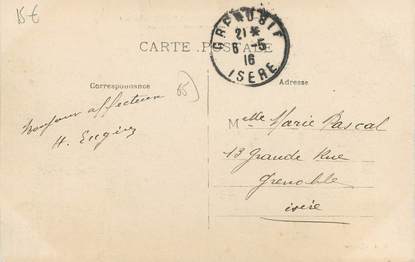 15€
CARTE POSTALE
GRENOBLE
21 *
6 - 5
16
ISERE
Correspondance
Adresse
Bonjour affectueux
H.
Mlle Marie Pascal
13 Grande Rue
Grenoble
isère